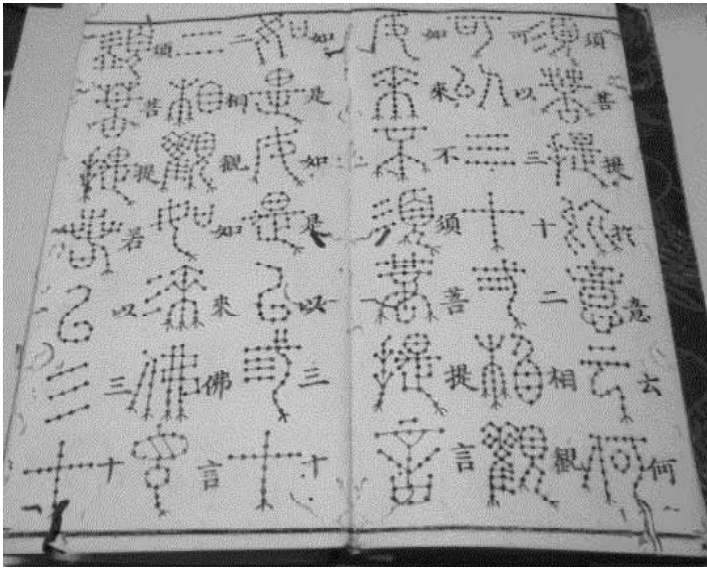 須菩提於意云何
可以三十二相觀
如來不須菩提言
如是如是以三十
二相觀如來佛言
須菩提若以三十